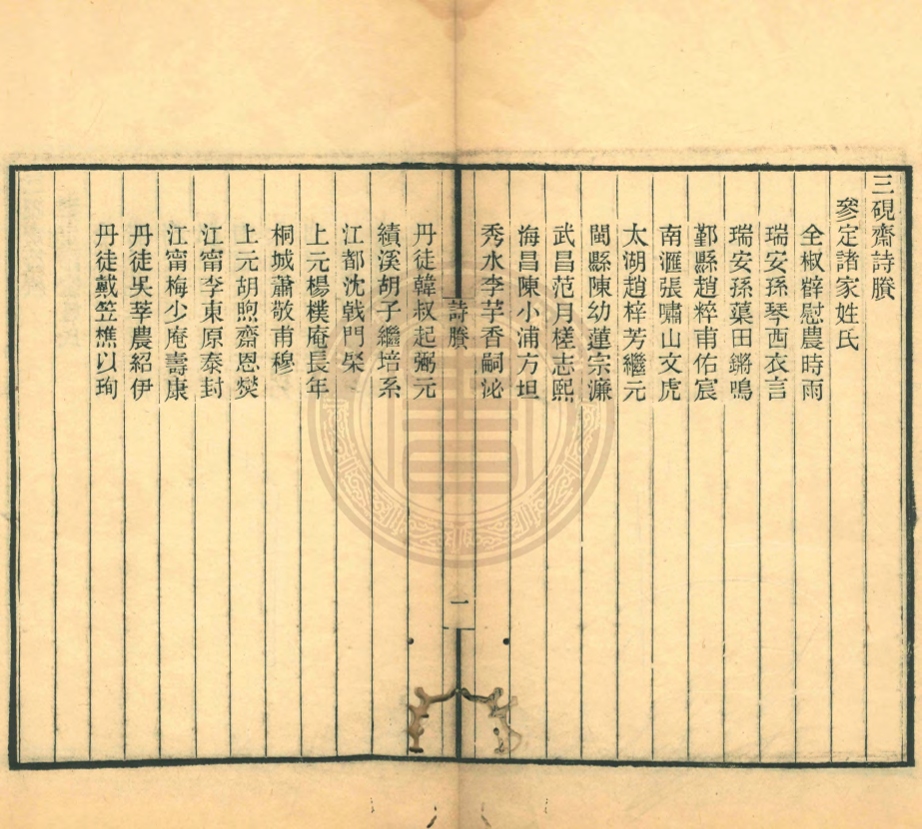 三硯齋詩賸
參定諸家姓氏
全椒薛慰農時雨
瑞安孫琴西衣言
瑞安孫蕖田鏘鳴
鄞縣趙粹甫佑宸
南滙張嘯山文虎
太湖趙梓芳繼元
閩縣陳幼蓮宗濂
武昌范月槎志熙
海昌陳小浦方坦
秀水李芋香嗣泌
詩賸
一
丹徒韓叔起弼元
績溪胡子繼培系
江都沈戟門棨
上元楊樸庵長年
桐城蕭敬甫穆
上元胡煦齋恩燮
江甯李東原泰封
江甯梅少庵壽康
丹徒吳莘農紹伊
丹徒戴笠樵以珣